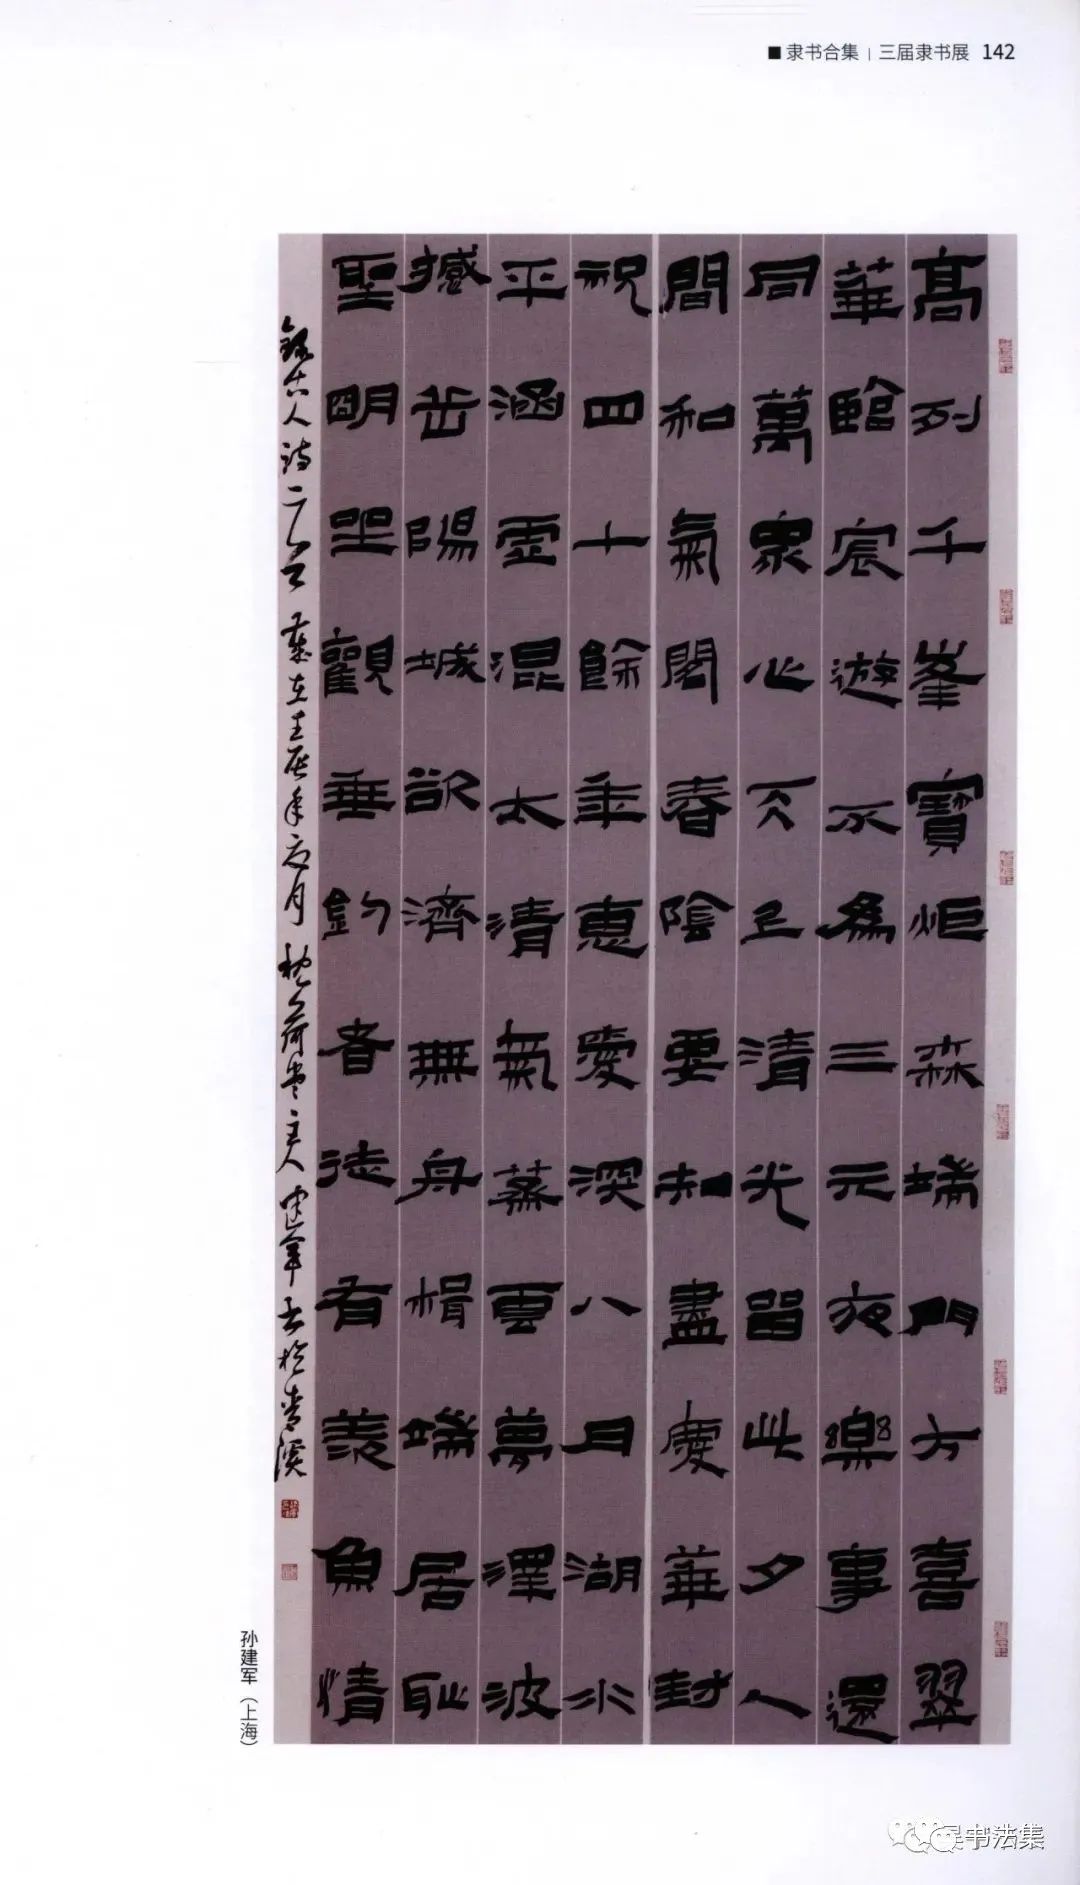 ■ 隶书合集 | 三届隶书展 142
高列千峯寶炬森端門方喜翠
華臨宸遊不為三元夜樂事還
同萬眾心天上清光留此夕人
間和氣閣春陰要知盡慶華封
祝四十餘年惠愛深八月湖水
平涵虛混太清氣蒸雲夢澤波
撼岳陽城欲濟無舟楫端居恥
聖明坐觀垂釣者徒有羨魚情
錄古人詩二首 歲在壬辰年六月 枕荷堂主人 建軍書於青溪
孙建军（上海）
书法集